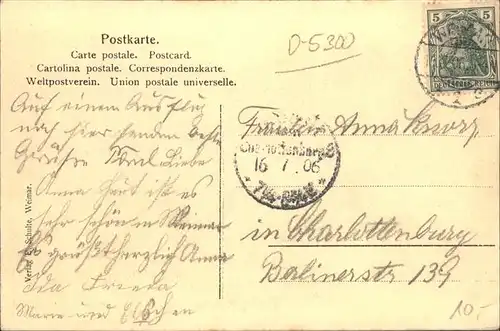 Postkarte.
Carte postale. Postcard.
Cartolina postale. Correspondenzkarte.
Weltpostverein. Union postale universelle.
D-5300
5 5
DEUTSCHES REICH
Auf einem Ausflug
nach hier senden beste
Grüsse Liebe
Anna heut ist es
sehr schön in Weimar
Es grüßt herzlich Anna
Ida Frieda
Marie und
Verlag Schulte, Weimar.
Fräulein Anna
Charlottenburg
16 7. 06
in Charlottenburg
Berlinerstr 139
10.-